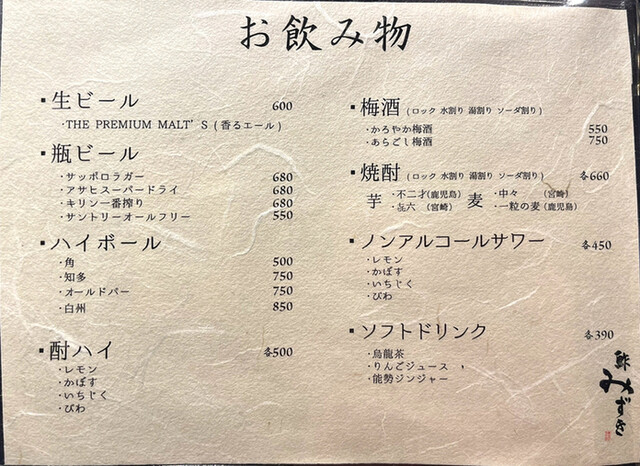 お飲み物
▪生ビール 600
・THE PREMIUM MALT'S (香るエール)
▪瓶ビール
・サッポロラガー 680
・アサヒスーパードライ 680
・キリン一番搾り 680
・サントリーオールフリー 550
▪ハイボール
・角 500
・知多 750
・オールドパー 750
・白州 850
▪酎ハイ 各500
・レモン
・かぼす
・いちじく
・びわ
▪梅酒 (ロック 水割り 湯割り ソーダ割り)
・かろやか梅酒 550
・あらごし梅酒 750
▪焼酎 (ロック 水割り 湯割り ソーダ割り) 各660
芋 ・不二才(鹿児島) 麦 ・中々 (宮崎)
・㐂六 (宮崎) ・一粒の麦(鹿児島)
▪ノンアルコールサワー 各450
・レモン
・かぼす
・いちじく
・びわ
▪ソフトドリンク 各390
・烏龍茶
・りんごジュース
・能勢ジンジャー
鮓 みずき